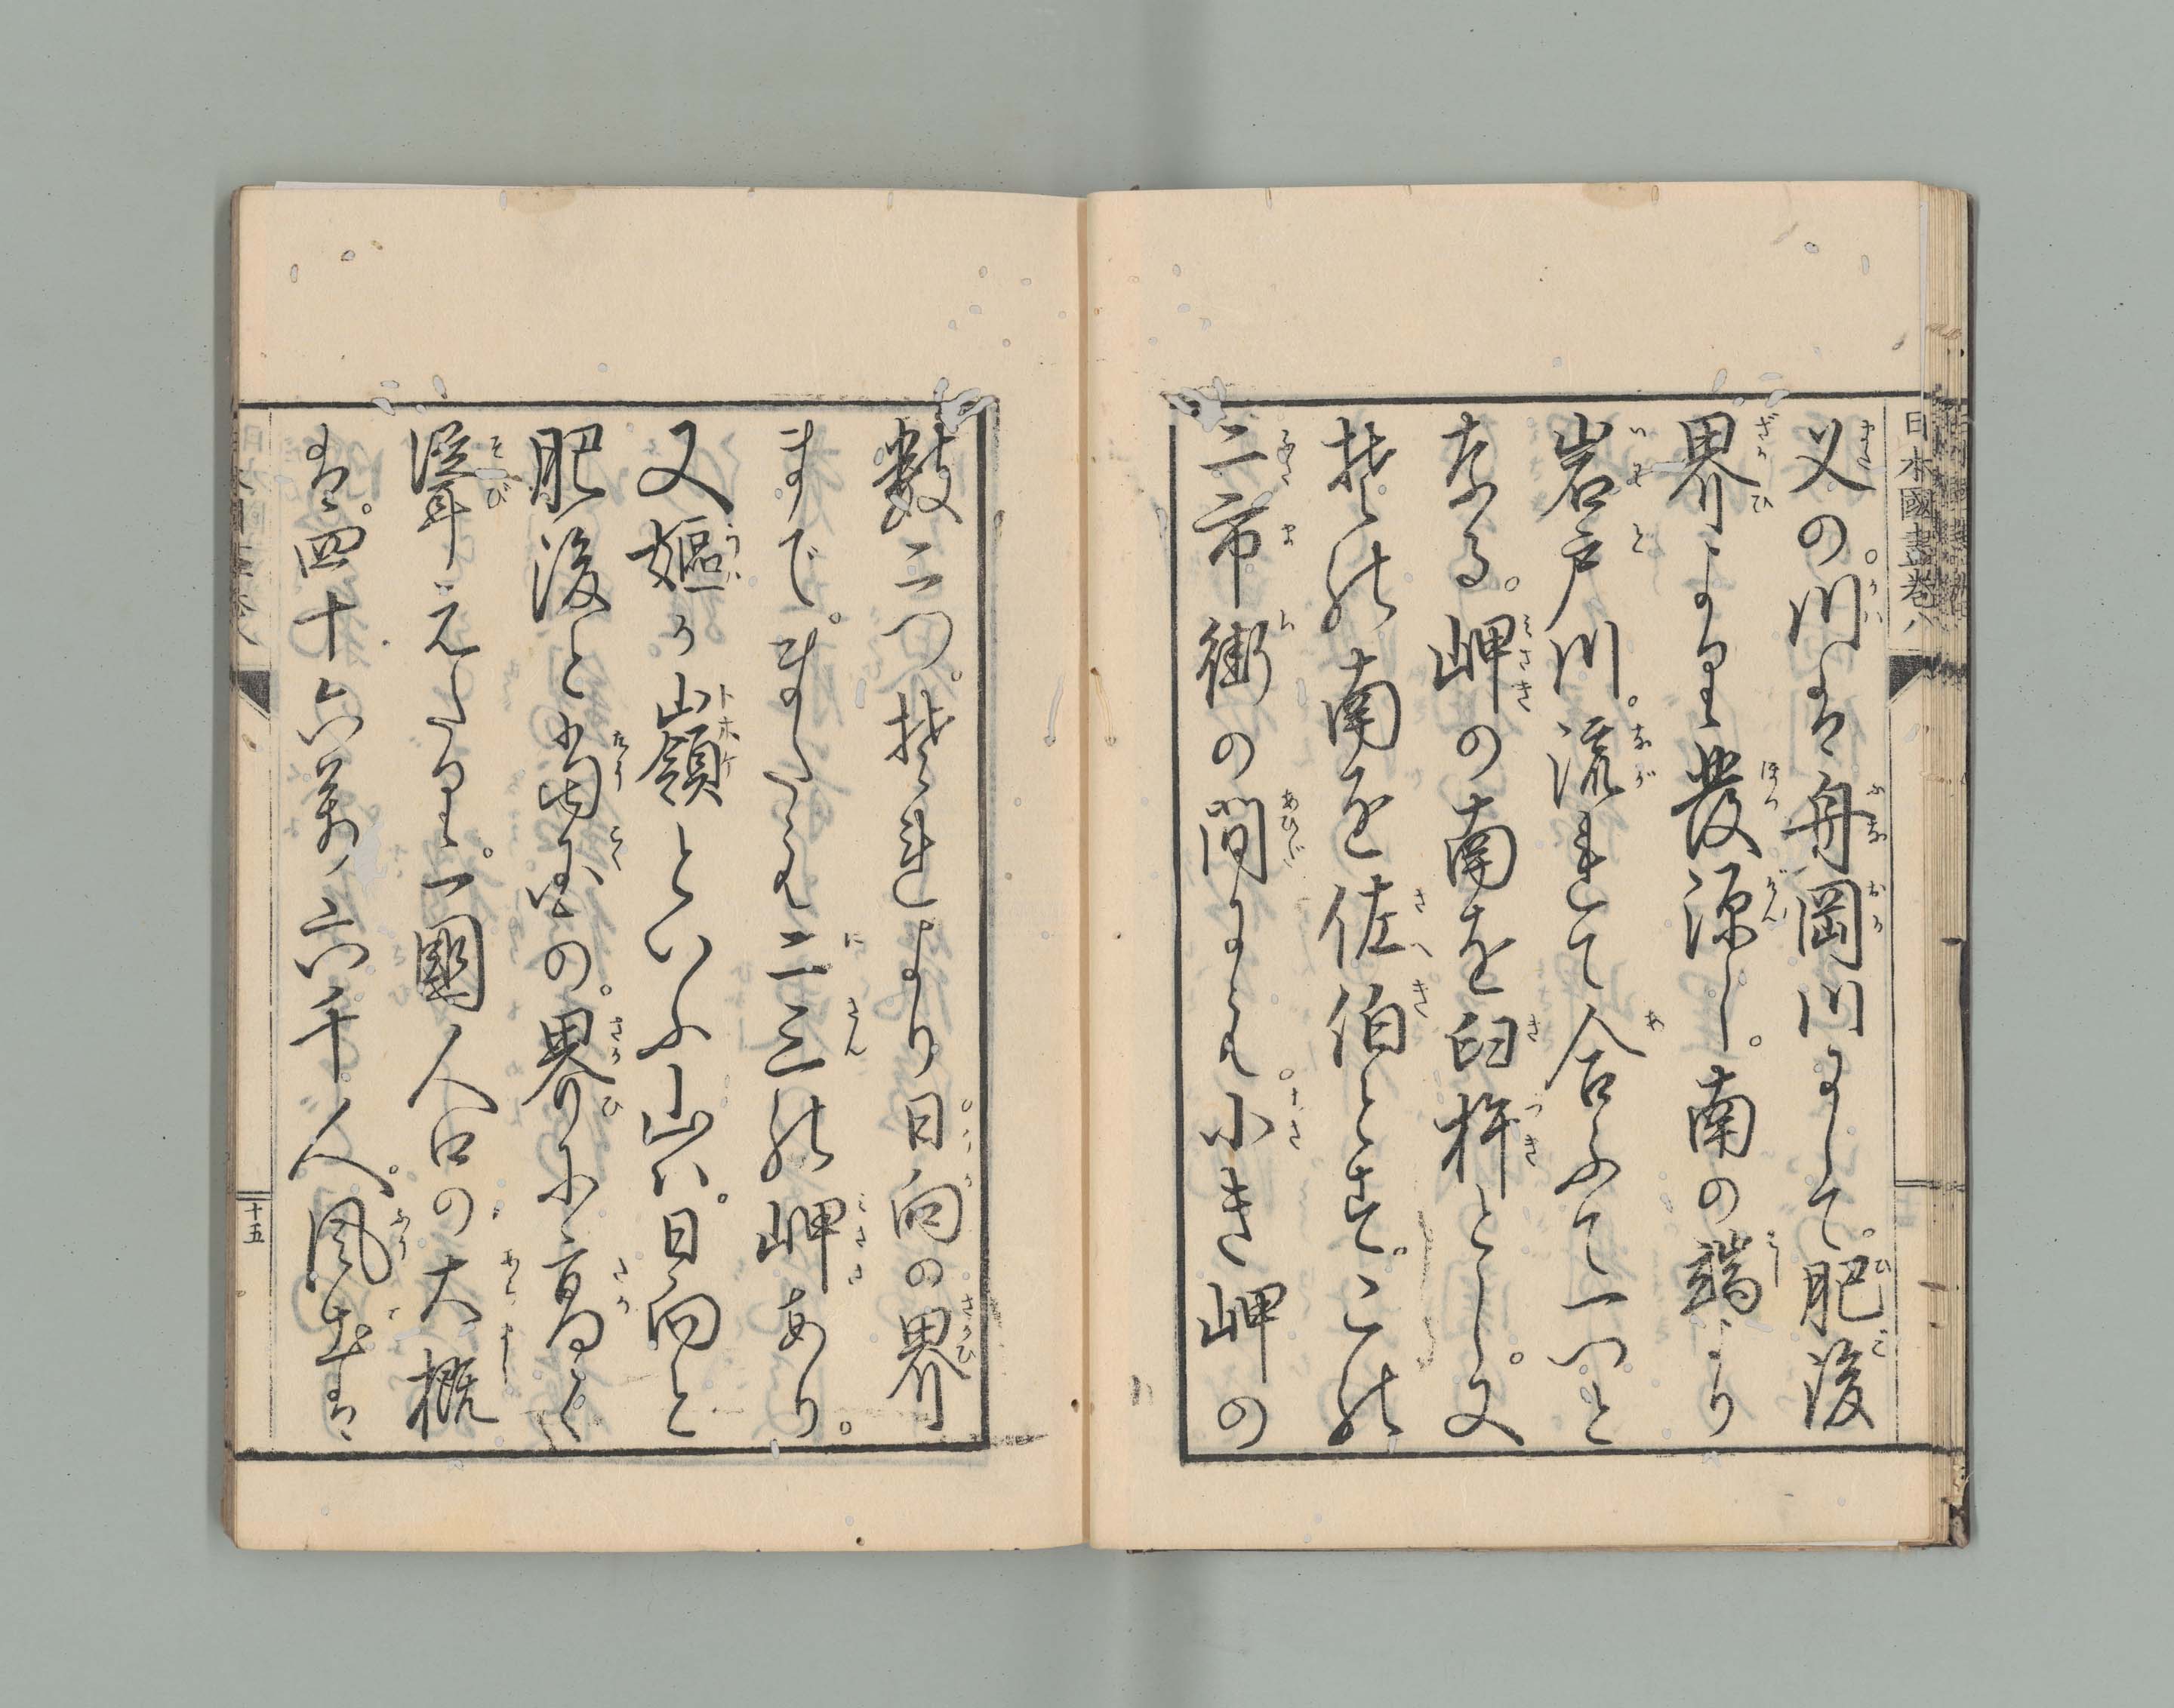 日本國盡巻八
又の川は舟岡川にして。肥後
界より發源し。南の端より
岩戸川。流れて合ふて一つと
なる。岬の南を臼杵とし。又
其の南を佐伯とす。この
二市街の間にも。小き岬の
数二つ。それより日向の界
まで。またも二三の岬あり。
又嫗か山嶺といふ山ハ。日向と
肥後と當國の。界に高く
聳え(たり)。一國人口の大概
は。四十六萬六千人。風土は
十五